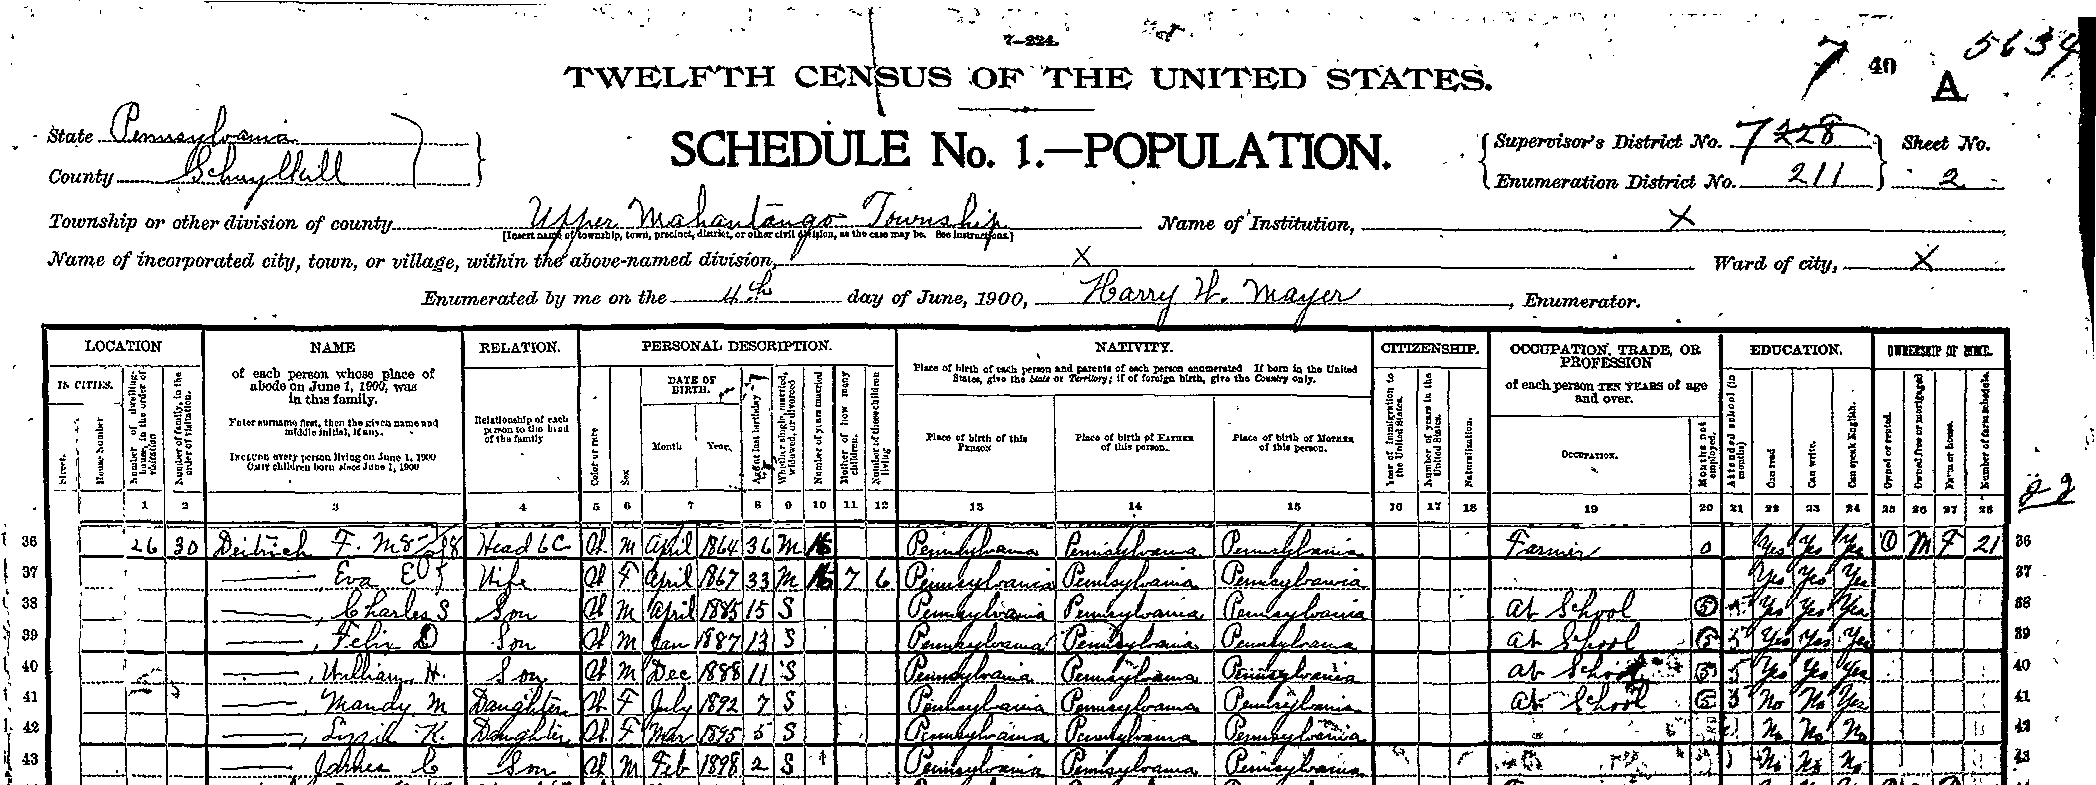 7—224.
7 40 A 5634
TWELFTH CENSUS OF THE UNITED STATES.
State Pennsylvania
County Schuylkill
SCHEDULE No. 1.—POPULATION.
Supervisor's District No. 7 228 Sheet No.
Enumeration District No. 211 2
Township or other division of county Upper Mahantango Township Name of Institution, X
[Insert name of township, town, precinct, district, or other civil division, as the case may be. See instructions.]
Name of incorporated city, town, or village, within the above-named division, X Ward of city, X
Enumerated by me on the 4th day of June, 1900, Harry W. Mayer, Enumerator.
LOCATION NAME RELATION. PERSONAL DESCRIPTION. NATIVITY. CITIZENSHIP. OCCUPATION, TRADE, OR PROFESSION EDUCATION. OWNERSHIP OF HOME.
IN CITIES.
Street.
House number
Number of dwelling-house, in the order of visitation
Number of family, in the order of visitation.
of each person whose place of abode on June 1, 1900, was in this family.
Enter surname first, then the given name and middle initial, if any.
Include every person living on June 1, 1900
Omit children born since June 1, 1900
Relationship of each person to the head of the family
Color or race
Sex
DATE OF BIRTH.
Month Year.
Age at last birthday
Whether single, married, widowed, or divorced
Number of years married
Mother of how many children.
Number of these children living
Place of birth of each person and parents of each person enumerated If born in the United States, give the State or Territory; if of foreign birth, give the Country only.
Place of birth of this Person
Place of birth of Father of this person.
Place of birth of Mother of this person.
Year of immigration to the United States.
Number of years in the United States.
Naturalization.
of each person TEN YEARS of age and over.
Occupation.
Months not employed.
Attended school (in months)
Can read
Can write.
Can speak English.
Owned or rented.
Owned free or mortgaged
Farm or house.
Number of farm schedule.
1 2 3 4 5 6 7 8 9 10 11 12 13 14 15 16 17 18 19 20 21 22 23 24 25 26 27 28
36 26 30 Deitrich F. Head W M April 1864 36 M Pennsylvania Pennsylvania Pennsylvania Farmer 0 Yes Yes Yes O M F 21 36
37 —, Eva E Wife W F April 1867 33 M 7 6 Pennsylvania Pennsylvania Pennsylvania Yes Yes Yes 37
38 —, Charles S Son W M April 1885 15 S Pennsylvania Pennsylvania Pennsylvania at School 5 Yes Yes Yes 38
39 —, Felix D Son W M Jan 1887 13 S Pennsylvania Pennsylvania Pennsylvania at School 5 5 Yes Yes Yes 39
40 —, William H. Son W M Dec 1888 11 S Pennsylvania Pennsylvania Pennsylvania at School 5 5 Yes Yes Yes 40
41 —, Mandy M Daughter W F July 1892 7 S Pennsylvania Pennsylvania Pennsylvania at School 5 5 No No Yes 41
42 —, Lizzie K. Daughter W F Mar 1895 5 S Pennsylvania Pennsylvania Pennsylvania No No No 42
43 —, James C Son W M Feb 1898 2 S Pennsylvania Pennsylvania Pennsylvania No No No 43